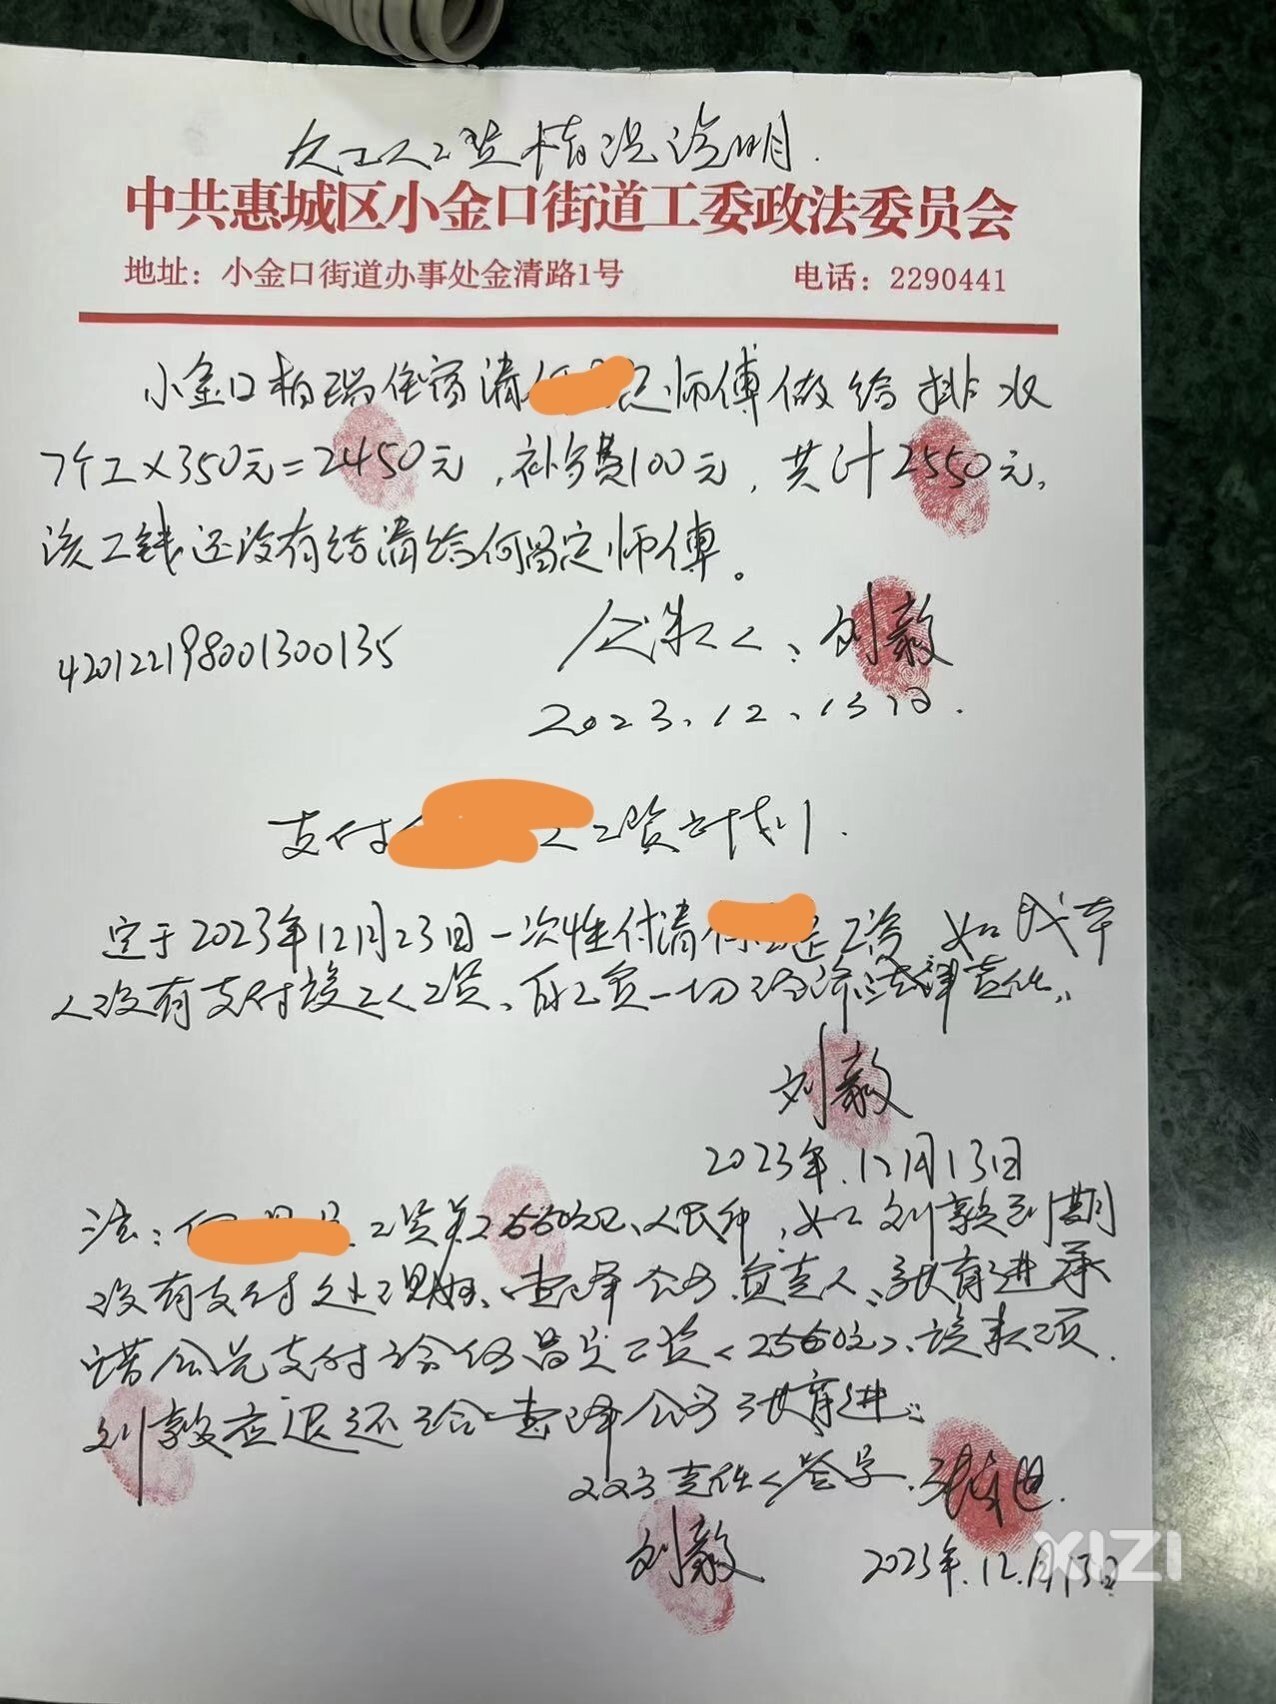 欠工人工资情况说明.
中共惠城区小金口街道工委政法委员会
地址：小金口街道办事处金清路1号 电话：2290441
小金口柏瑞住宿请何 定师傅做给排水
7个工×350元=2450元,补餐费100元,共计2550元,
该工钱还没有结清给何昌定师傅。
420122198001300135 人:刘毅
2023.12.13日.
支付 工资计划.
定于2023年12月23日一次性付清何 定工资 如我本
人没有支付该工人工资、自己负一切经济法律责任。
刘毅
2023年.12月13日
注:何 工资共2550元、人民币,如刘毅到期
没有支付处理好、惠泽公司负责人、张育进承
诺公司支付给何昌定工资<2550元>、该款项.
刘毅应退还给惠泽公司张育进。
责任人签字.张育进.
刘毅 2023年.12.月13日
XIZI